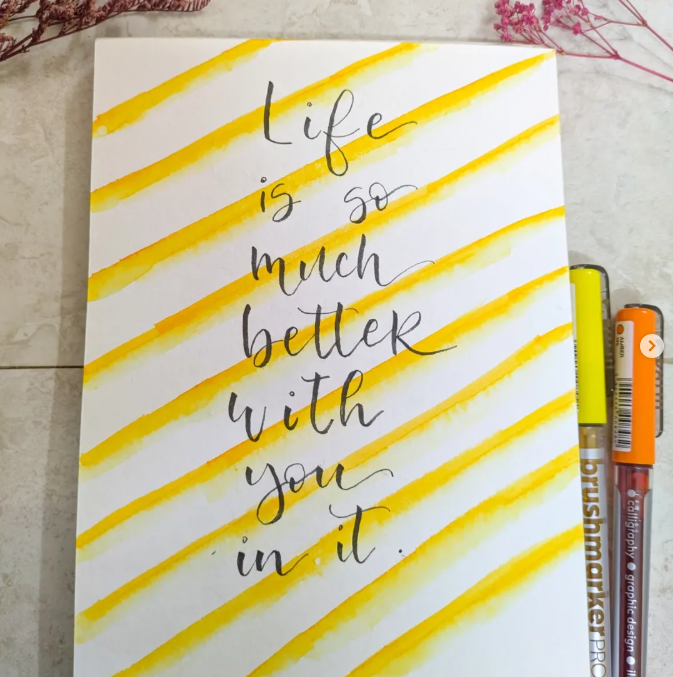 Life
is so
much
better
with
you
in it.
brushmarkerPRO
calligraphy ● graphic design ●